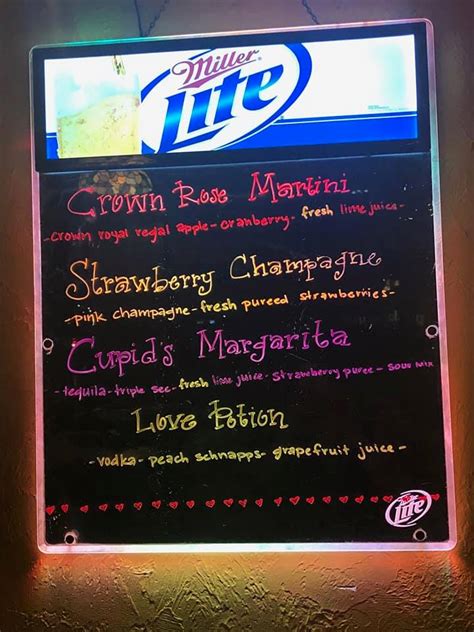 Miller
Lite
Crown Rose Martini
-crown royal regal apple-cranberry-fresh lime juice-
Strawberry Champagne
-pink champagne-fresh pureed strawberries-
Cupid's Margarita
-tequila-triple sec-fresh lime juice-strawberry puree-sour mix
Love Potion
-vodka-peach schnapps-grapefruit juice-
Lite